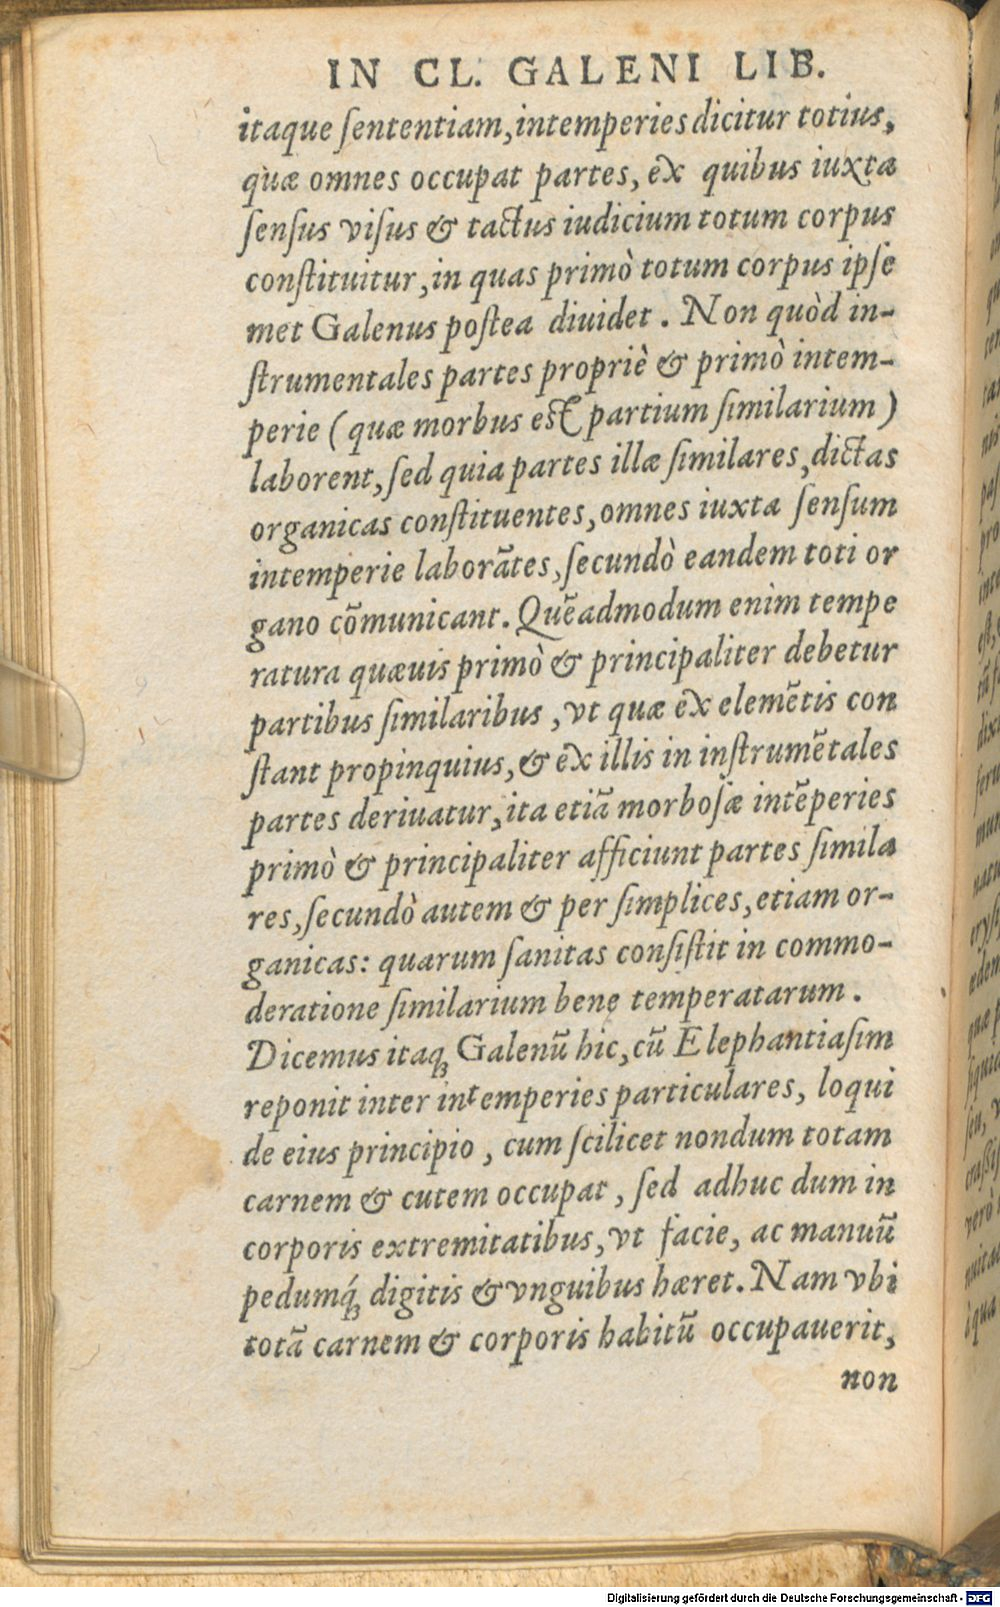 IN CL. GALENI LIB.
itaque ſententiam, intemperies dicitur totius,
quæ omnes occupat partes, ex quibus iuxta
ſenſus viſus & tactus iudicium totum corpus
conſtituitur, in quas primò totum corpus ipſe
met Galenus poſtea diuidet. Non quòd in-
ſtrumentales partes propriè & primò intem-
perie (quæ morbus est partium ſimilarium)
laborent, ſed quia partes illæ ſimilares, dictas
organicas conſtituentes, omnes iuxta ſenſum
intemperie laborãtes, ſecundò eandem toti or
gano cõmunicant. Quẽadmodum enim tempe
ratura quæuis primò & principaliter debetur
partibus ſimilaribus, vt quæ ex elemẽtis con
ſtant propinquius, & ex illis in inſtrumẽtales
partes deriuatur, ita etiã morboſæ intẽperies
primò & principaliter afficiunt partes ſimila
res, ſecundò autem & per ſimplices, etiam or-
ganicas: quarum ſanitas conſiſtit in commo-
deratione ſimilarium bene temperatarum.
Dicemus itaqꝫ Galenũ hic, cũ Elephantiaſim
reponit inter intemperies particulares, loqui
de eius principio, cum ſcilicet nondum totam
carnem & cutem occupat, ſed adhuc dum in
corporis extremitatibus, vt facie, ac manuũ
pedumq́ꝫ digitis & vnguibus hæret. Nam vbi
totã carnem & corporis habitũ occupauerit,
non
Digitalisierung gefördert durch die Deutsche Forschungsgemeinschaft - DFG